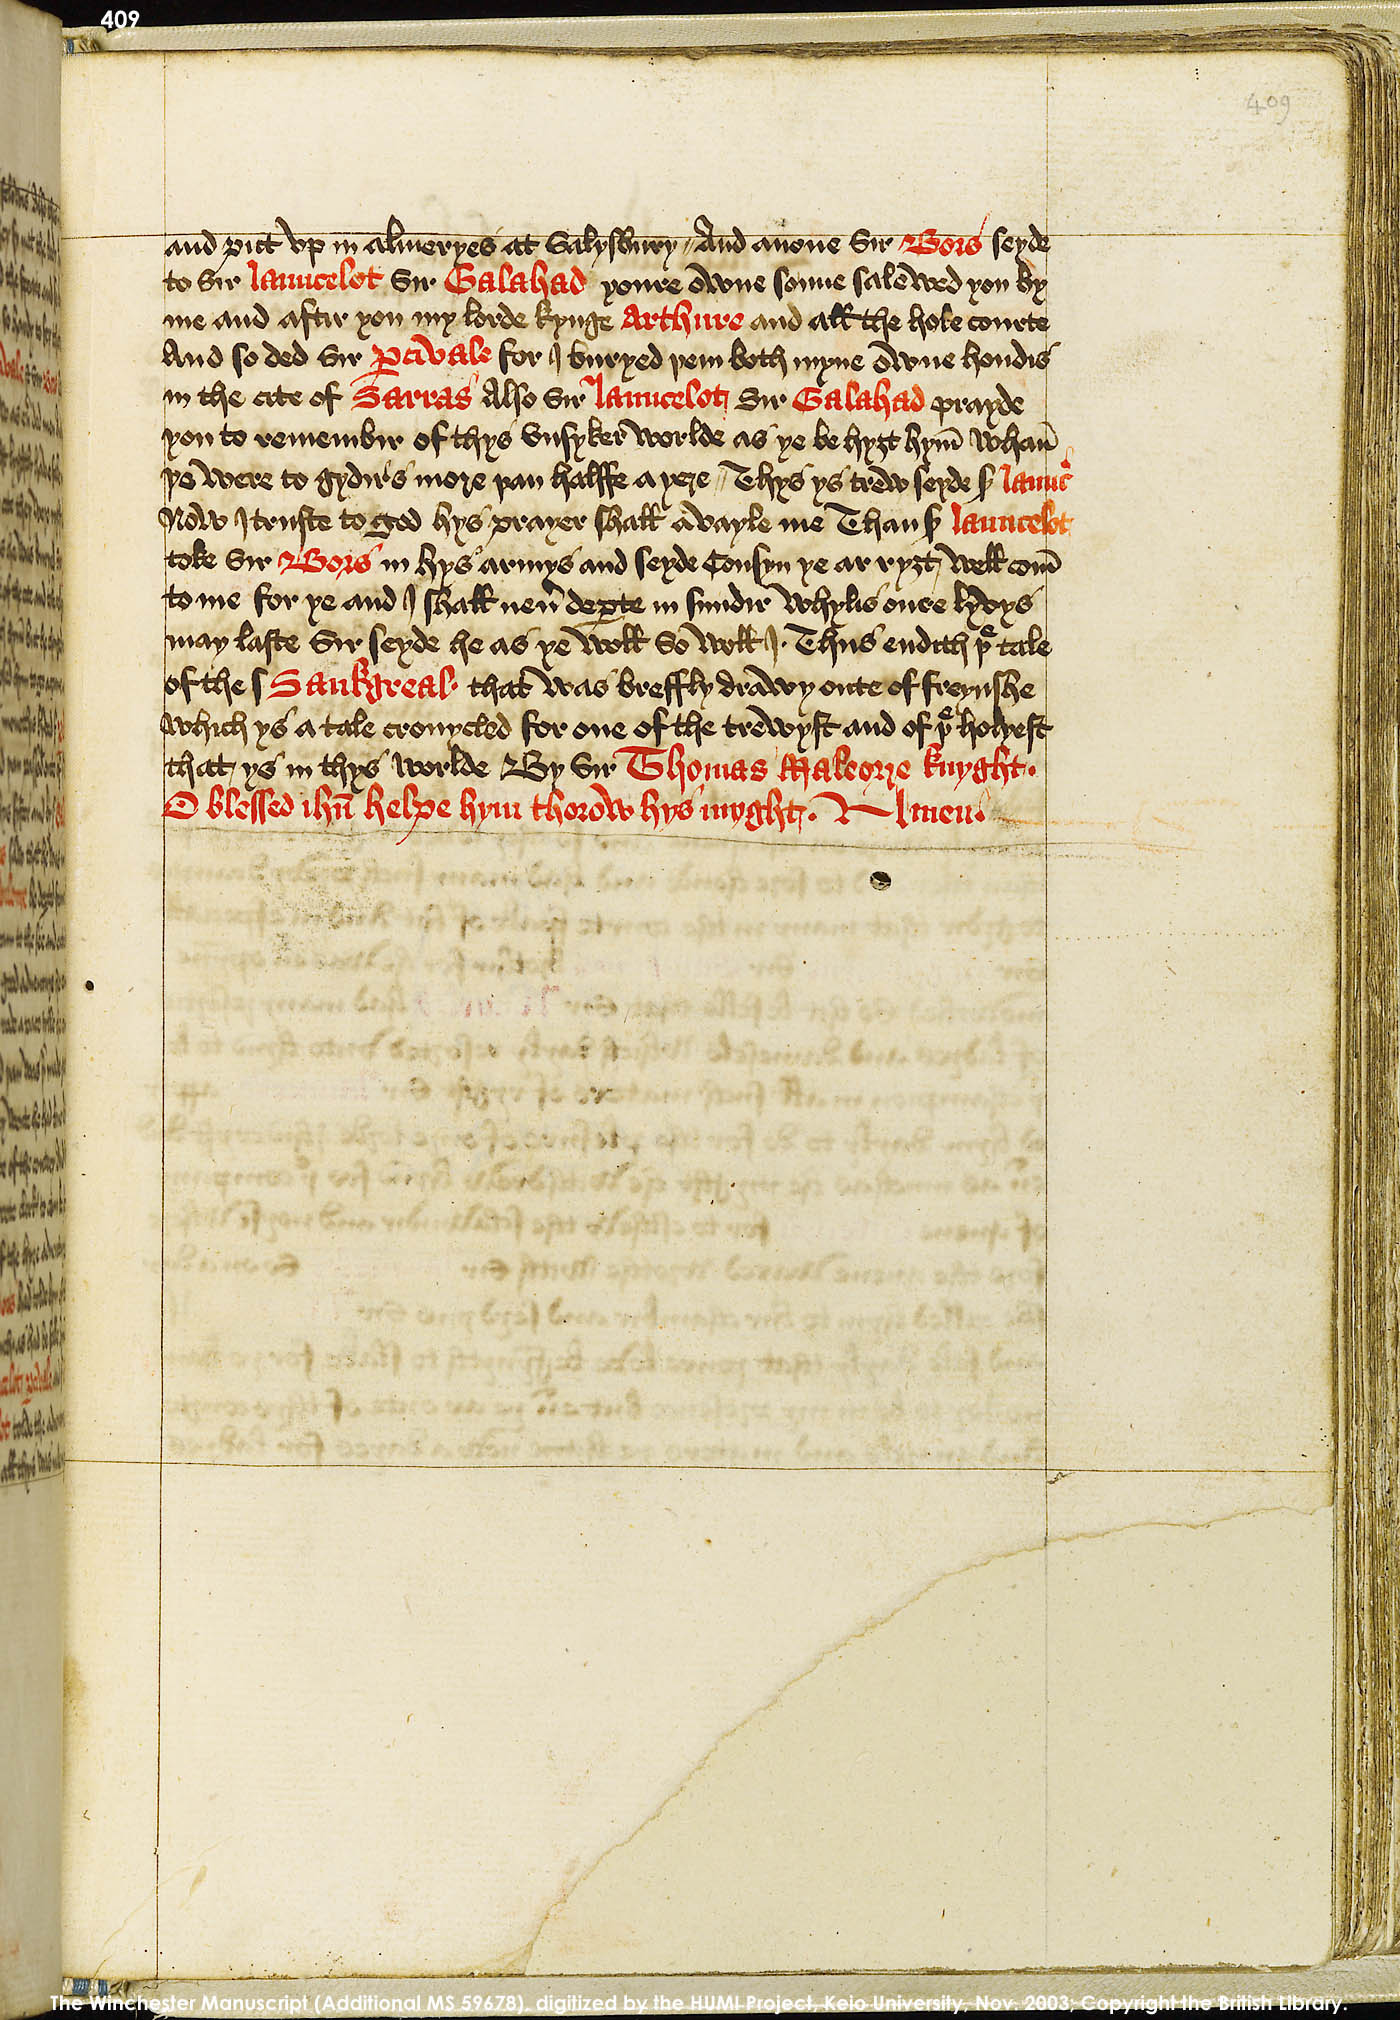 409
409
and put vp in almeryes at Salysbury / And anone Sir Bors seyde
to Sir Launcelot Sir Galahad youre owne sonne salewed you by
me and aftir you my lorde kynge Arthure and all the hole courte
And so ded Sir Ꝑcivale for I buryed þem both myne owne hondis
in the cite of Sarras Also Sir Launcelot Sir Galahad prayde
you to remembir of thys vnsyker worlde as ye be hyȝt hym̄ whan̄
ye were to gydirs more þan halffe a yere / Thys ys trew seyde ẜ Launc̉
Now I truste to god hys prayer shall avayle me Than ẜ Launcelot
toke Sir Bors in hys armys and seyde Cousyn ye ar ryȝt well com̄
to me for ye and I shall neủ deꝑte in sundir whylis oure lyvys
may laste Sir seyde he as ye woll So woll I. Thus endith þͤ tale
of the s Sankgreal. that was breffly drawy oute of freynshe
which ys a tale cronycled for one of the trewyst and of þͤ holyest
that ys in thys worlde By Sir Thomas Maleorre knyght.
O blessed ihū helpe hym thorow hys myght. Amen.
The Winchester Manuscript (Additional MS 59678), digitized by the HUMI Project, Keio University, Nov. 2003; Copyright the British Library.